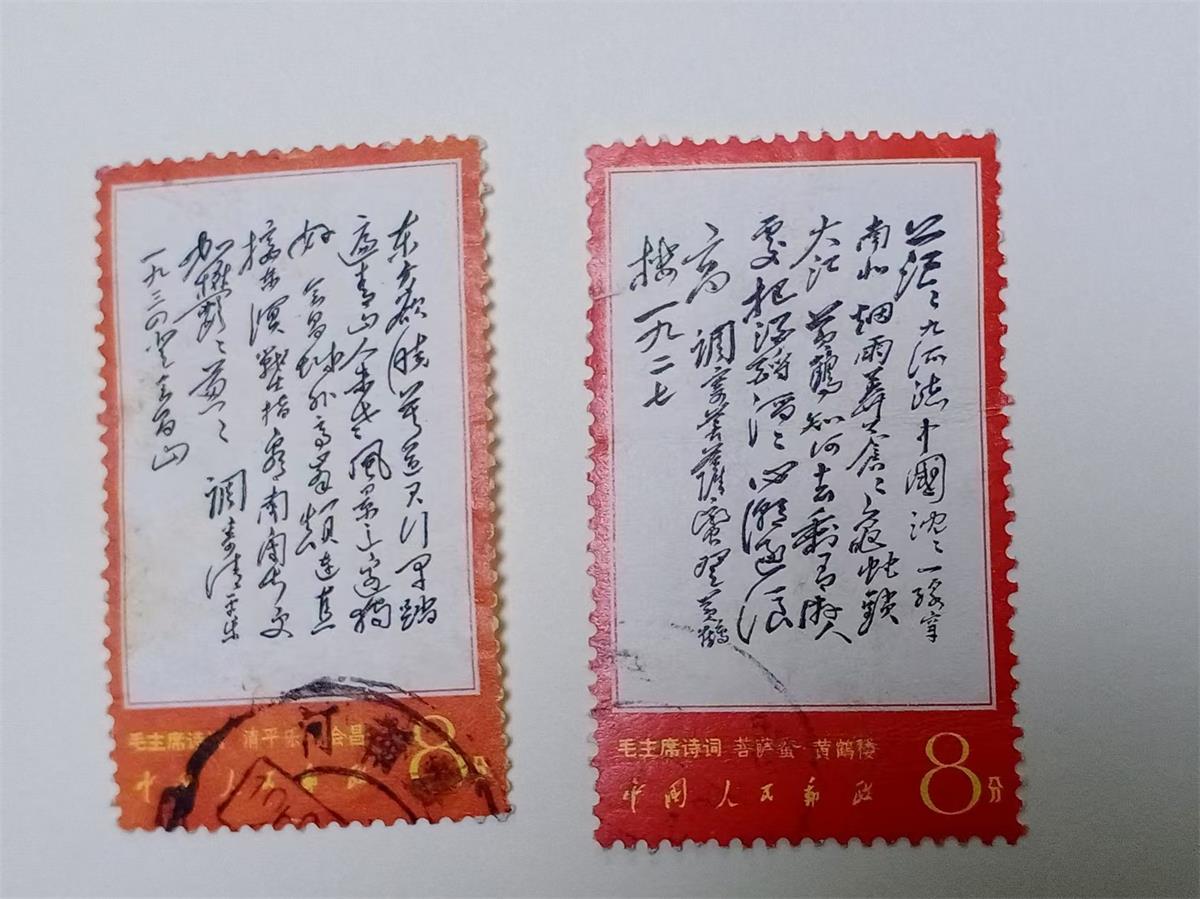 东方欲晓莫道君行早踏
遍青山人未老风景这边独
好 会昌城外高峯颠连直
接东溟战士指看南粤更
加欝〻葱〻 调寄清平乐
一九三四登会昌山
毛主席诗词 清平乐 会昌
中国人民邮政
8分
河南
茫〻九派流中國沈〻一线穿
南北烟雨莽苍〻龟蛇鎖
大江 黄鶴知何去剩有游人
處把酒酹滔〻心潮逐浪
高 調寄菩薩蛮登黄鶴
楼 一九二七
毛主席诗词 菩萨蛮·黄鹤楼
中国人民邮政
8分